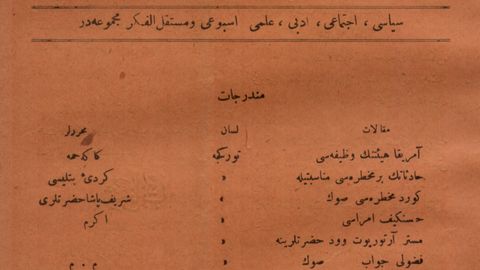 سیاسی ، اجتماعی ، ادبی ، علمی اسبوعی ومستقل الفکر مجموعه‌در
مندرجات
مقالات لسان محررلر
آمریقا هیئتنك وظیفه‌سی تورکجه كاكه‌حمه
حادثاتك بر مخطره‌سی مناسبتیله » كردیٔ بتلیسی
كورد مخطره‌سی صوك » شریف پاشا حضرتلری
حسنكیف امراسی » اكرم
مستر آرتور یوت وود حضرتلرینه »
فضولی جواب صوك » م . م